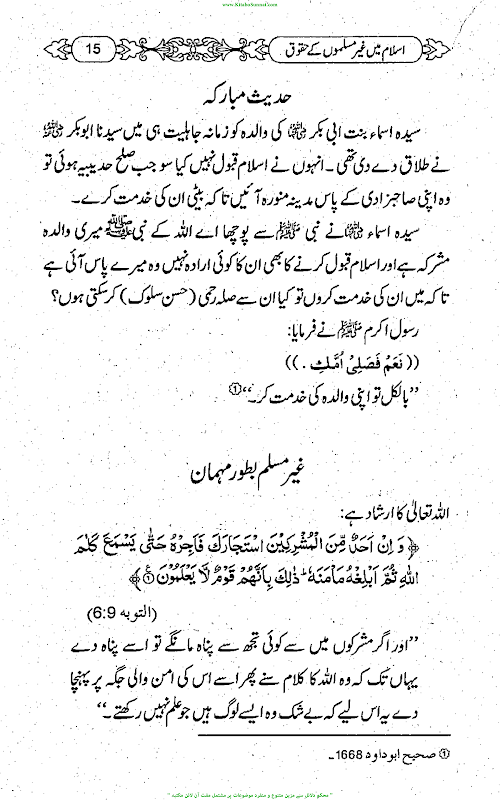 www.KitaboSunnat.com
15
اسلام میں غیر مسلموں کے حقوق
حدیث مبارکہ
سیدہ اسماء بنت ابی بکر رضی اللہ عنہا کی والدہ کو زمانہ جاہلیت ہی میں سیدنا ابوبکر رضی اللہ عنہ
نے طلاق دے دی تھی۔ انہوں نے اسلام قبول نہیں کیا سو جب صلح حدیبیہ ہوئی تو
وہ اپنی صاحبزادی کے پاس مدینہ منورہ آئیں تاکہ بیٹی ان کی خدمت کرے۔
سیدہ اسماء رضی اللہ عنہا نے نبی ﷺ سے پوچھا اے اللہ کے نبی ﷺ میری والدہ
مشرکہ ہے اور اسلام قبول کرنے کا بھی ان کا کوئی ارادہ نہیں وہ میرے پاس آئی ہے
تاکہ میں ان کی خدمت کروں تو کیا ان سے صلہ رحمی (حسن سلوک) کر سکتی ہوں؟
رسول اکرم ﷺ نے فرمایا:
((نَعَمْ فَصَلِيْ اُمَّكِ .))
’’بالکل تو اپنی والدہ کی خدمت کر۔‘‘①
غیر مسلم بطور مہمان
اللہ تعالیٰ کا ارشاد ہے:
﴿وَ اِنْ اَحَدٌ مِّنَ الْمُشْرِكِيْنَ اسْتَجَارَكَ فَاَجِرْهُ حَتّٰى يَسْمَعَ كَلٰمَ
اللّٰهِ ثُمَّ اَبْلِغْهُ مَاْمَنَهٗ ؕ ذٰلِكَ بِاَنَّهُمْ قَوْمٌ لَّا يَعْلَمُوْنَ﴾
(التوبه 6:9)
’’اور اگر مشرکوں میں سے کوئی تجھ سے پناہ مانگے تو اسے پناہ دے
یہاں تک کہ وہ اللہ کا کلام سنے پھر اسے اس کی امن والی جگہ پر پہنچا
دے یہ اس لیے کہ بے شک وہ ایسے لوگ ہیں جو علم نہیں رکھتے۔‘‘
① صحیح ابوداود 1668۔
"محکم دلائل سے مزین متنوع و منفرد موضوعات پر مشتمل مفت آن لائن مکتبہ"